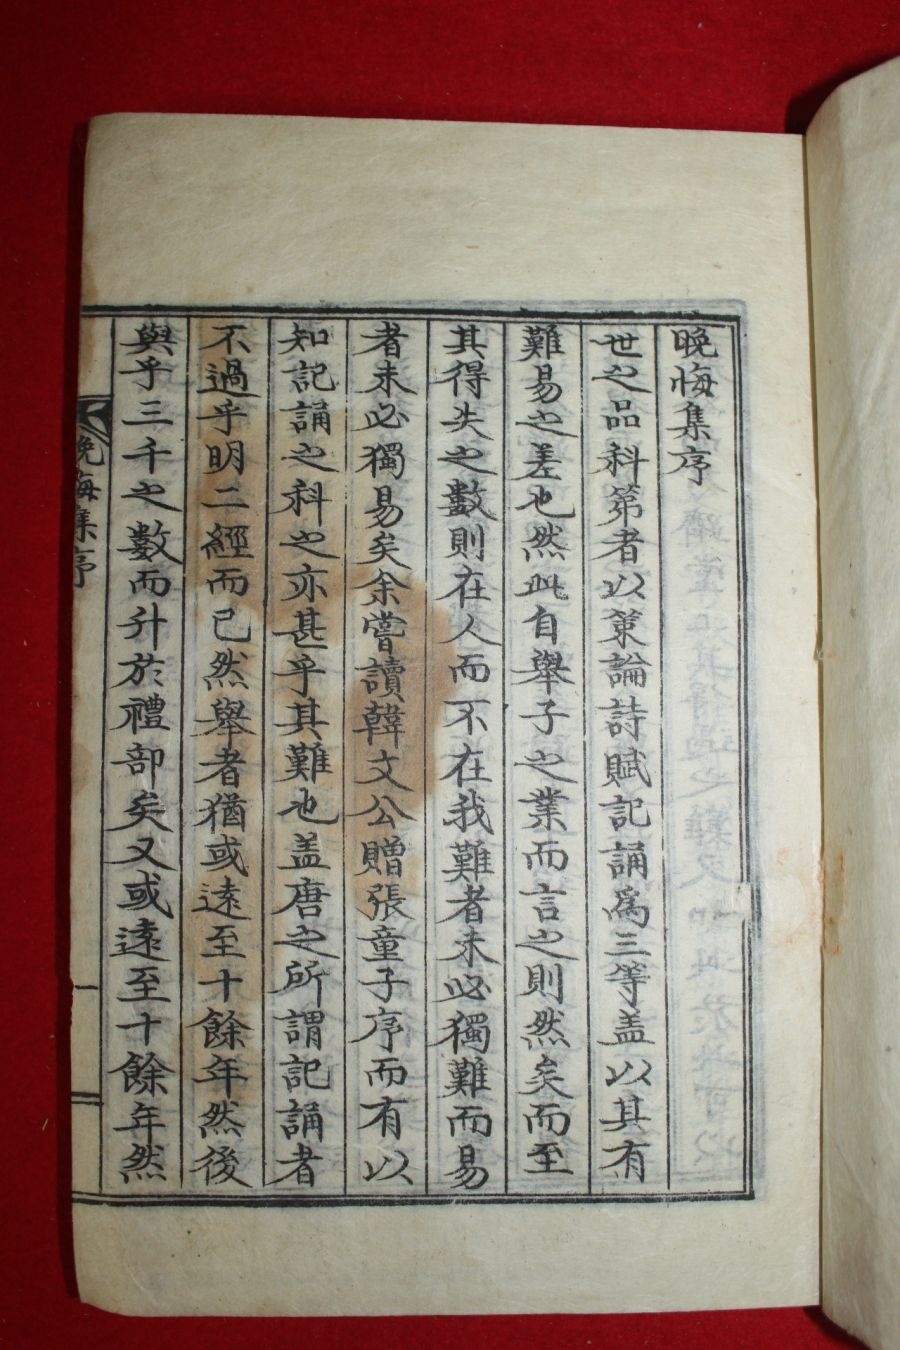 晩悔集序
世之品科第者以策論詩賦記誦爲三等盖以其有
難易之差也然此自舉子之業而言之則然矣而至
其得失之數則在人而不在我難者未必獨難而易
者未必獨易矣余嘗讀韓文公贈張童子序而有以
知記誦之科之亦甚乎其難也盖唐之所謂記誦者
不過乎明二經而已然舉者猶或遠至十餘年然後
與乎三千之數而升於禮部矣又或遠至十餘年然
晩悔集序